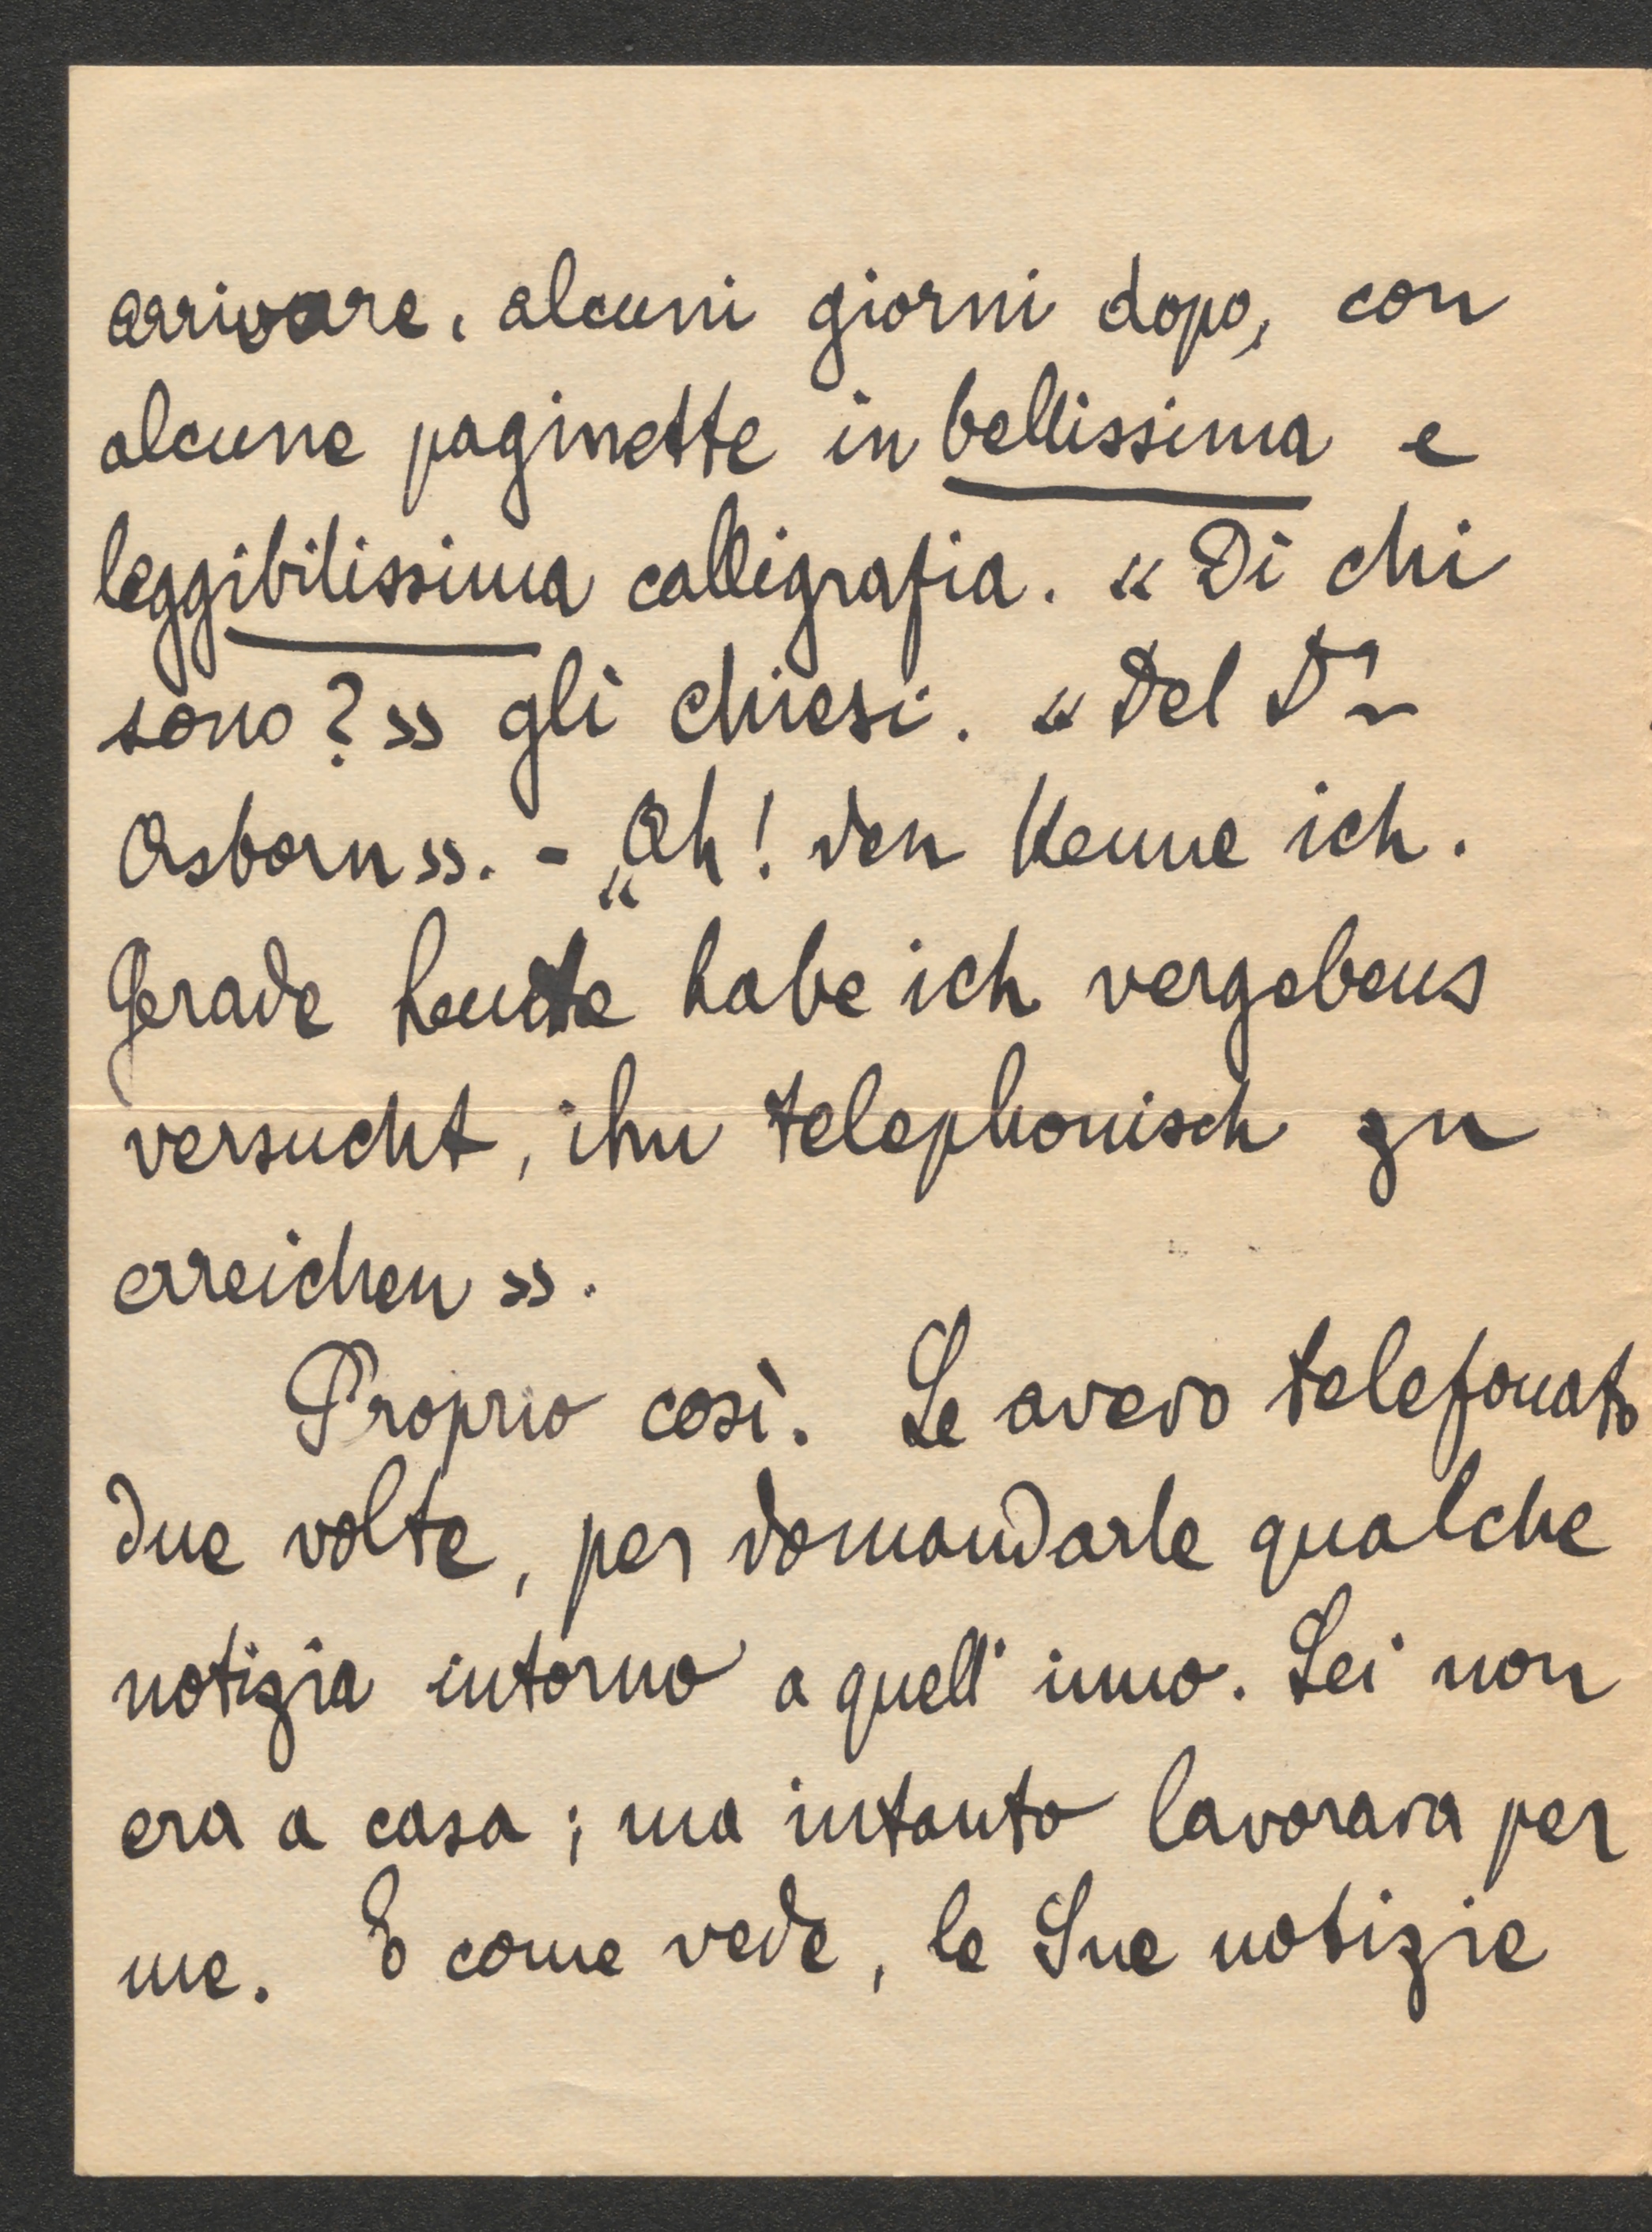 arrivare, alcuni giorni dopo, con
alcune paginette in bellissima e
leggibilissima calligrafia. « Di chi
sono ? » gli chiesi. « Del Dr
Osborn ». - „Oh ! den kenne ich.
Gerade heute habe ich vergebens
versucht, ihn telephonisch zu
erreichen ».
Proprio così. Le avevo telefonato
due volte, per domandarle qualche
notizia intorno a quell' inno. Lei non
era a casa ; ma intanto lavorava per
me. E come vede, le Sue notizie